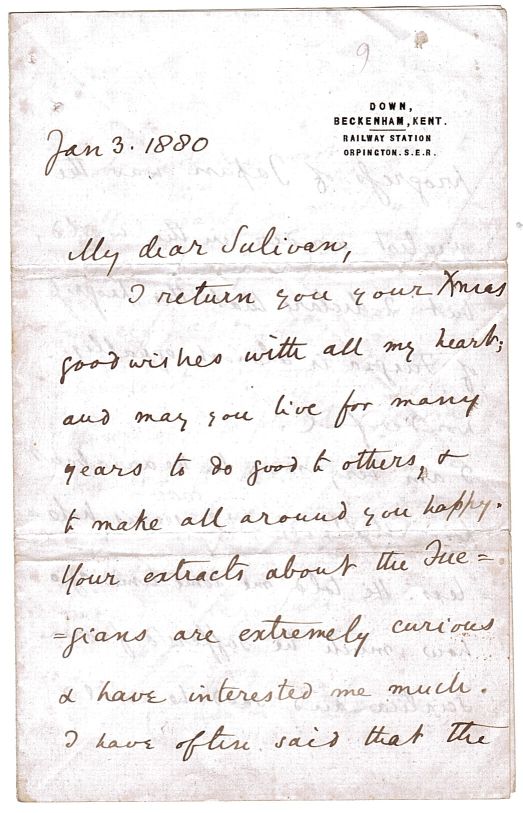 9
DOWN,
BECKENHAM, KENT.
RAILWAY STATION
ORPINGTON. S.E.R.
Jan 3. 1880
My dear Sulivan,
I return you your Xmas
good wishes with all my heart;
and may you live for many
years to do good to others, &
to make all around you happy.
Your extracts about the Fue=
=gians are extremely curious
& have interested me much.
I have often said that the